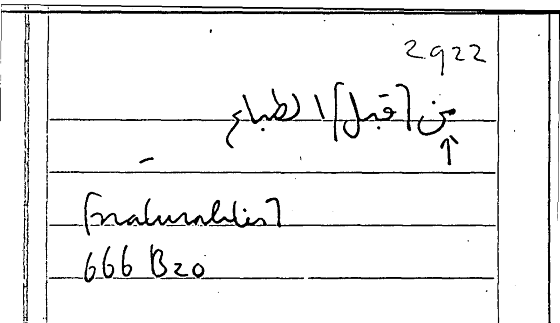 2922
من [قبل] الطباع
↑
[naturaliter]
666 B20